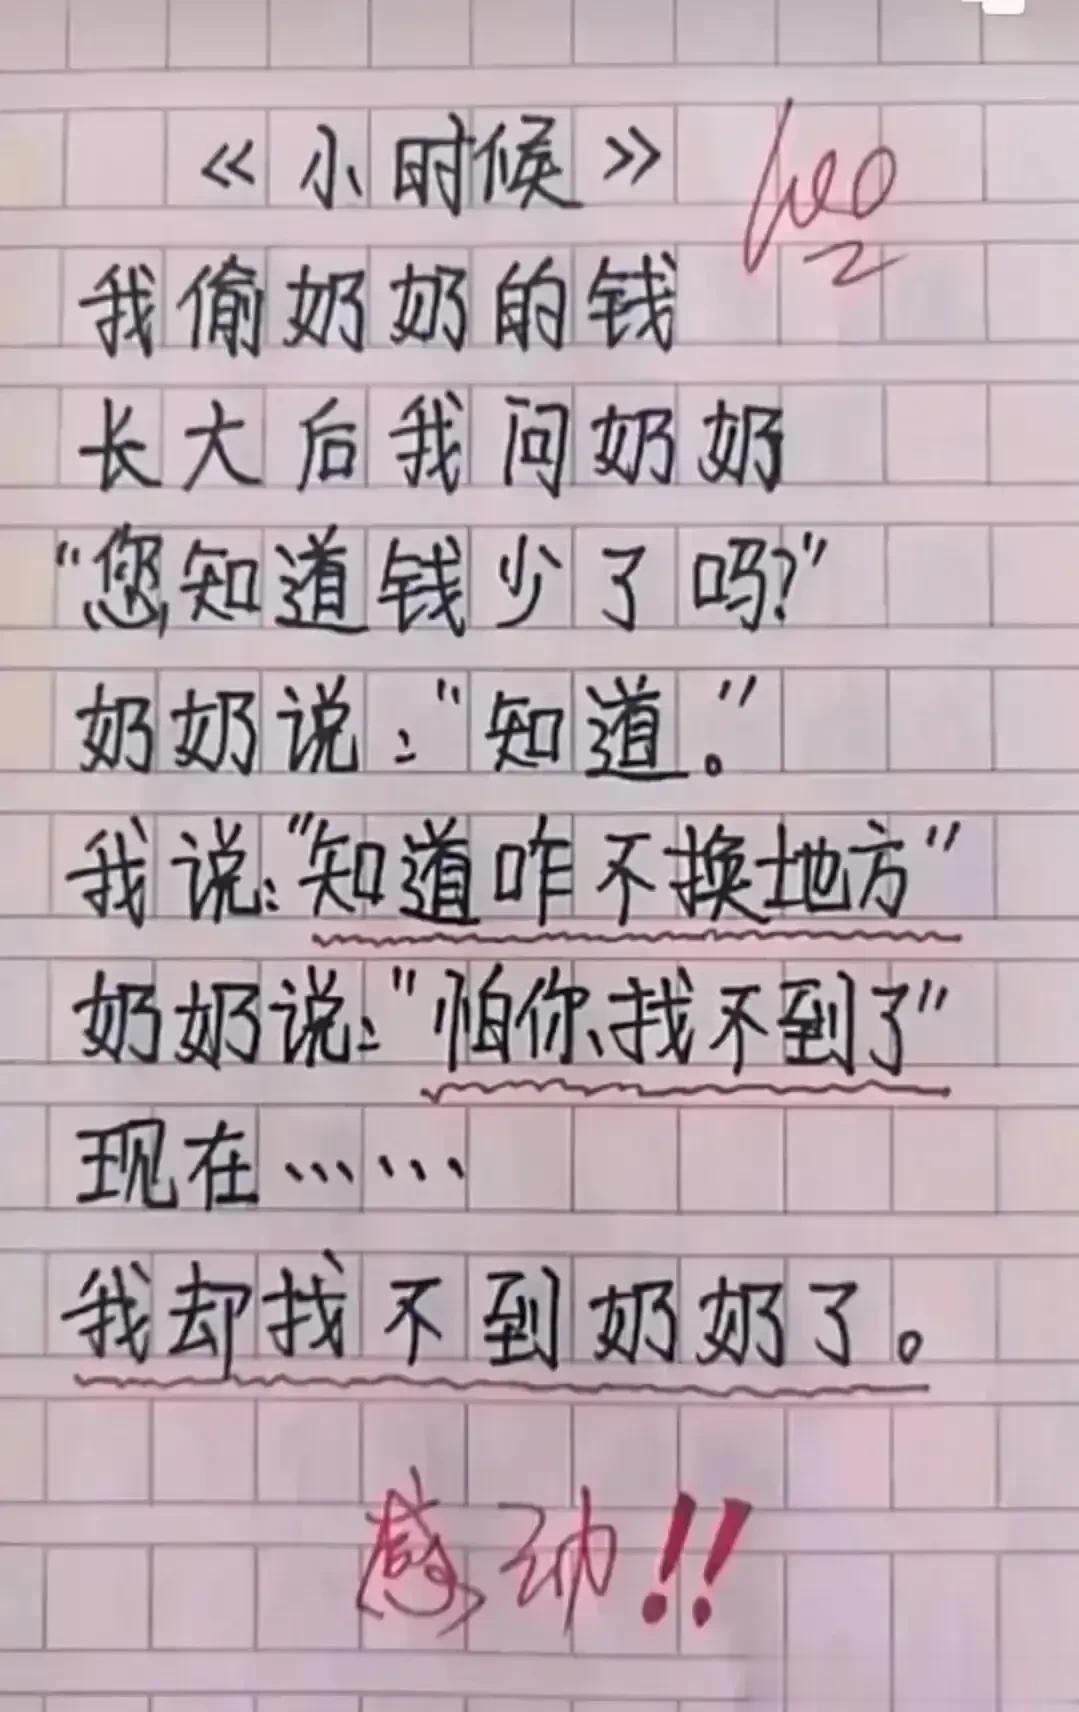 《小时候》
我偷奶奶的钱
长大后我问奶奶
“您知道钱少了吗?”
奶奶说:“知道.”
我说:“知道咋不换地方”
奶奶说:“怕你找不到了”
现在……
我却找不到奶奶了。
感动!!